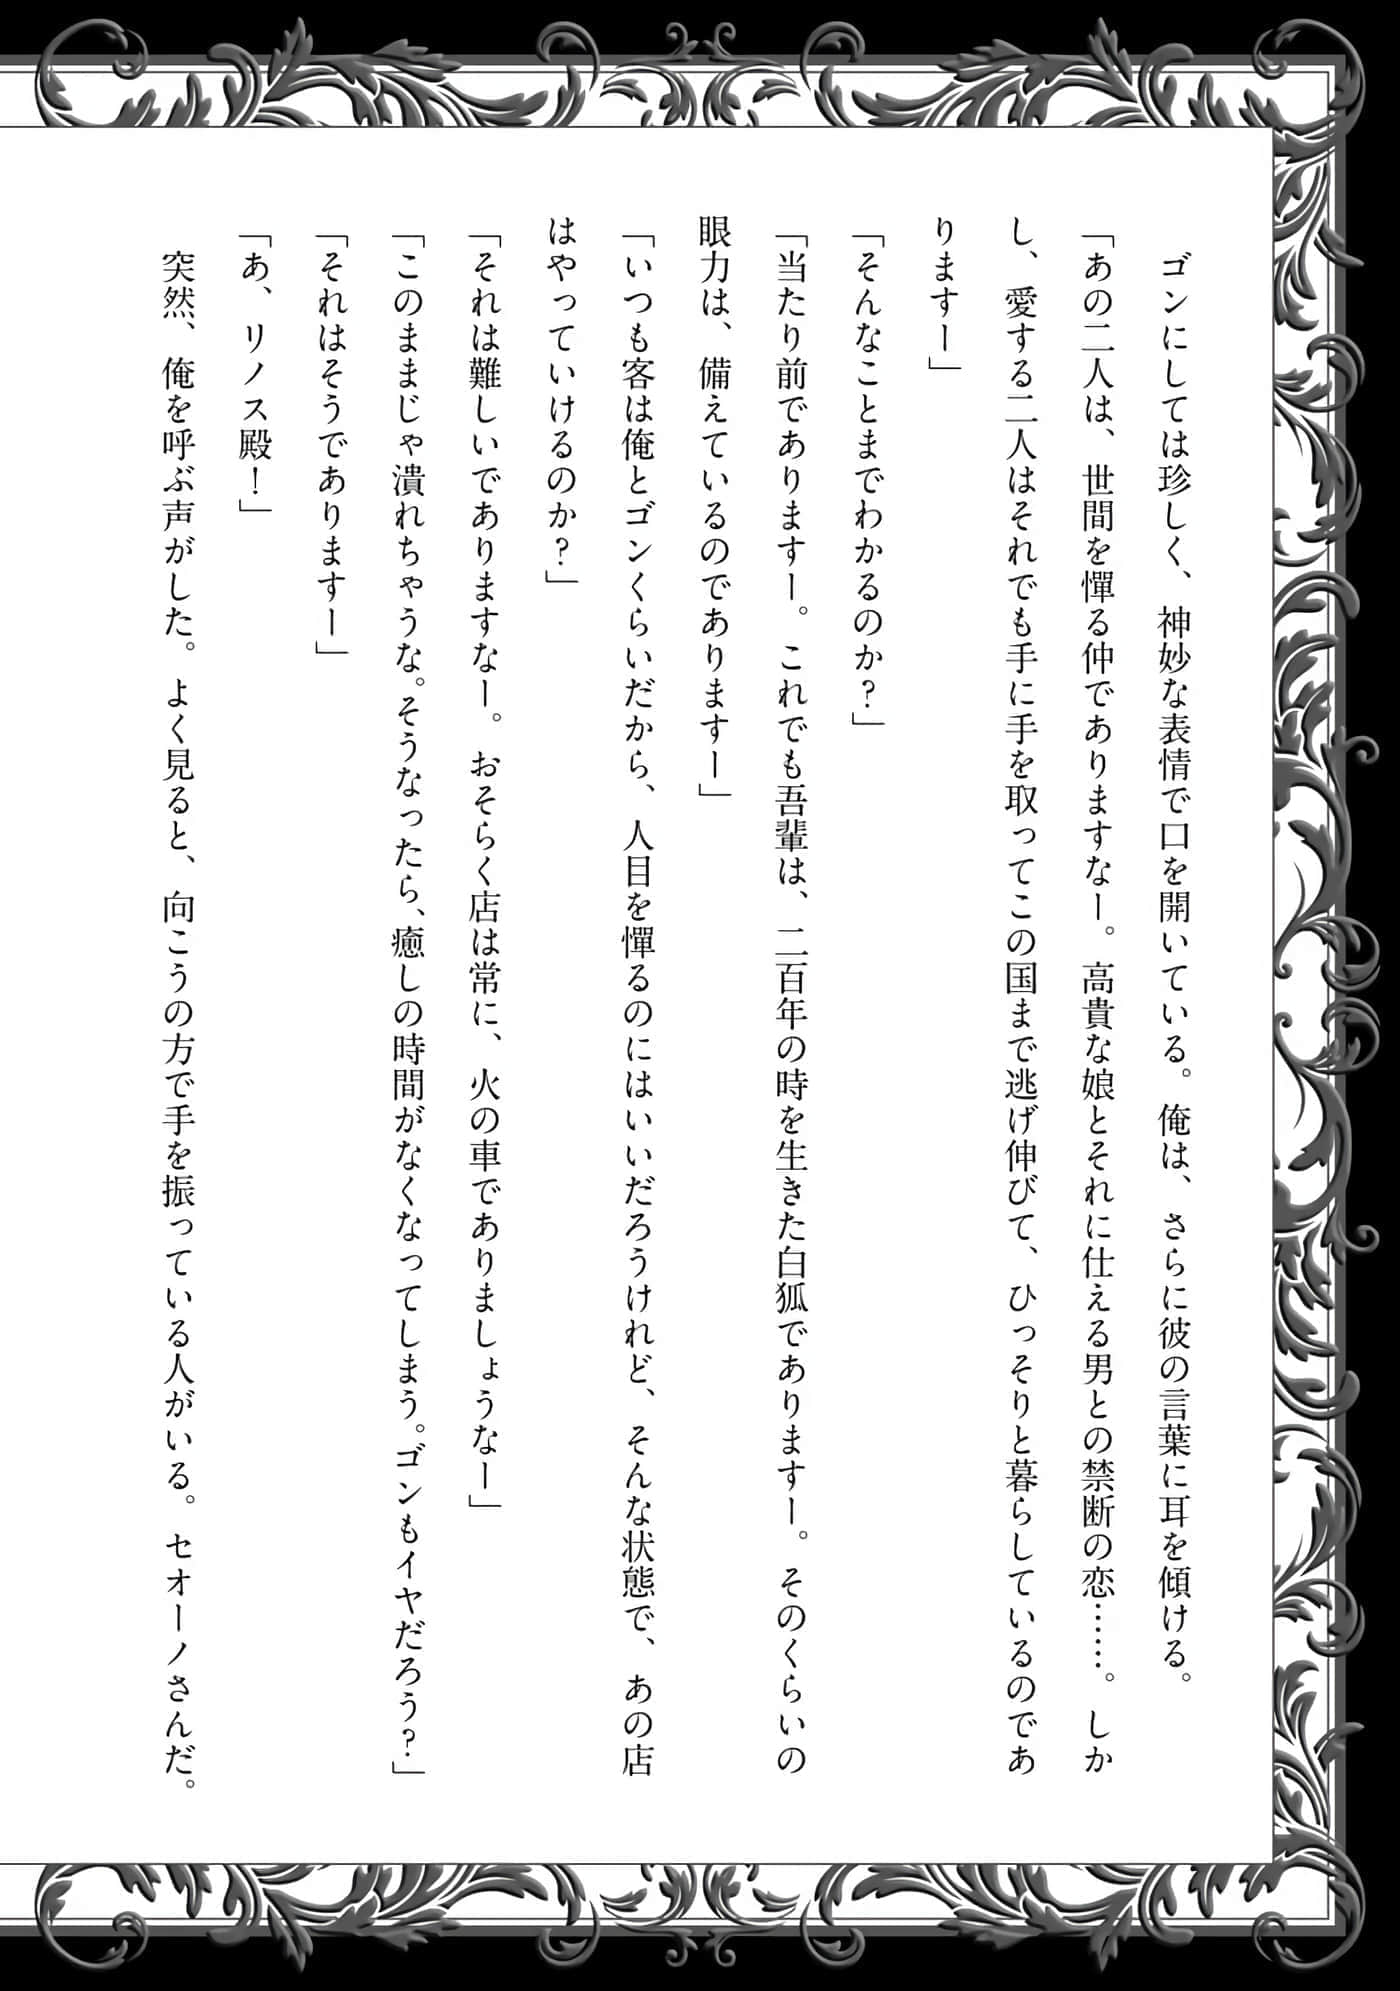 ゴンにしては珍しく、神妙な表情で口を開いている。俺は、さらに彼の言葉に耳を傾ける。
「あの二人は、世間を憚る仲でありますなー。高貴な娘とそれに仕える男との禁断の恋……。しか
し、愛する二人はそれでも手に手を取ってこの国まで逃げ伸びて、ひっそりと暮らしているのであ
りますー」
「そんなことまでわかるのか？」
「当たり前でありますー。これでも吾輩は、二百年の時を生きた白狐でありますー。そのくらいの
眼力は、備えているのでありますー」
「いつも客は俺とゴンくらいだから、人目を憚るのにはいいだろうけれど、そんな状態で、あの店
はやっていけるのか？」
「それは難しいでありますなー。おそらく店は常に、火の車でありましょうなー」
「このままじゃ潰れちゃうな。そうなったら、癒しの時間がなくなってしまう。ゴンもイヤだろう？」
「それはそうでありますー」
「あ、リノス殿！」
突然、俺を呼ぶ声がした。よく見ると、向こうの方で手を振っている人がいる。セオーノさんだ。